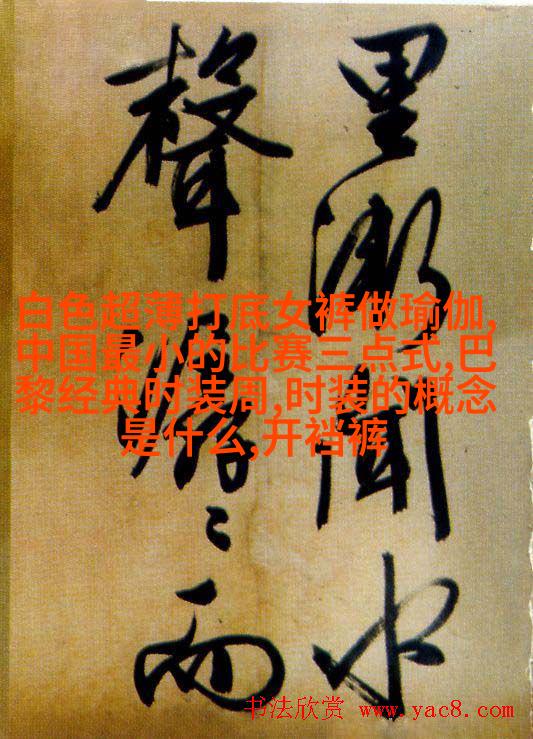 里漸聞水
聲潺〻而
白色超薄打底女裤做瑜伽,
中国最小的比赛三点式,巴
黎经典时装周,时装的概念
是什么,开裆裤
书法欣赏 www.yac8.com